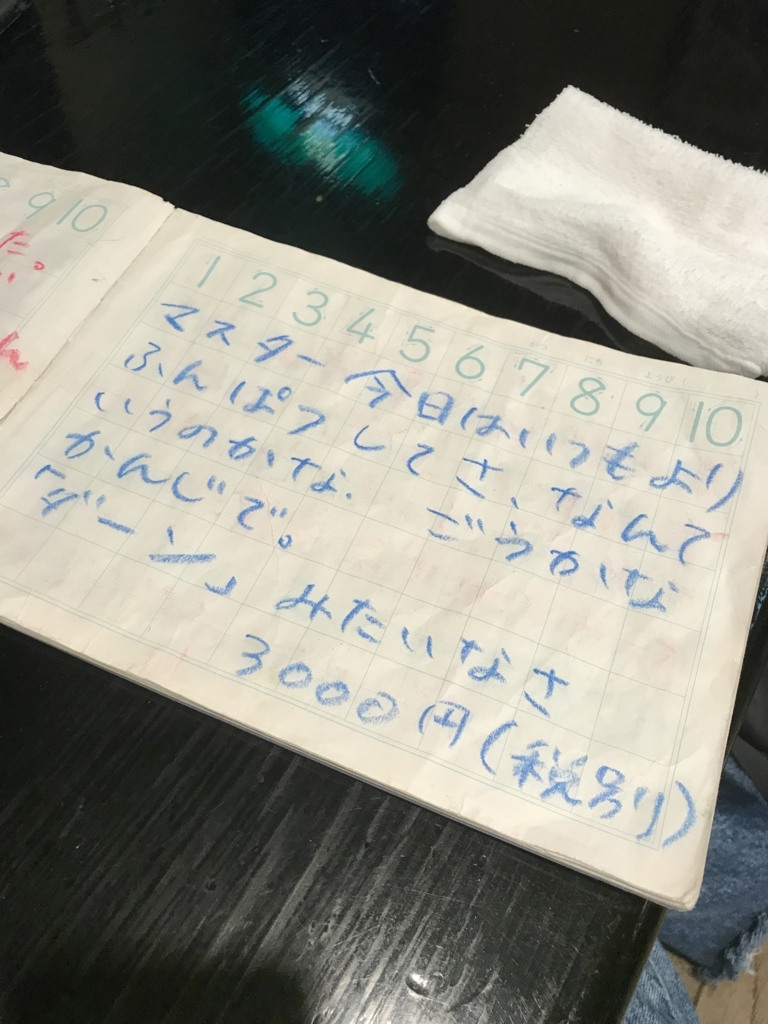 9 10
1 2 3 4 5 6 7 8 9 10
マスター 今日はいつもより
ふんぱつしてさ、なんて
いうのかな、 ごうかな
かんじで。
「デーン」みたいなさ
3000円(税別)